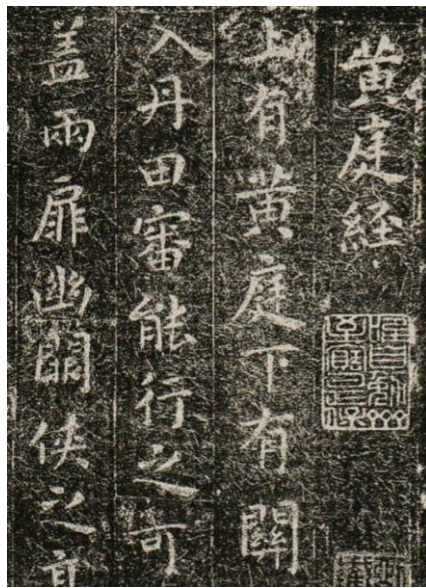 黄庭經
上有黄庭下有關
入丹田審能行之可
盖兩扉幽關俠之